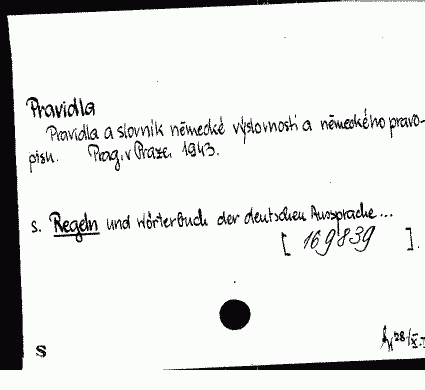 Pravidla
Pravidla a slovník německé výslovnosti a německého pravo-
pisu. Prag, v Praze 1943.
s. Regeln und Wörterbuch der deutschen Aussprache...
[ 169839 ].
S